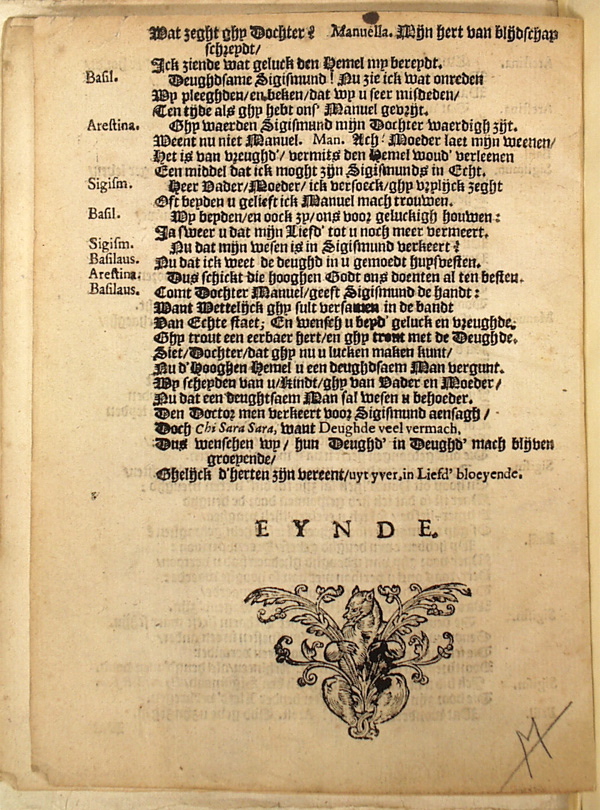 Wat zeght ghy Dochter? Manuella. Mijn hert van blijdschap
schreydt/
Ick ziende wat geluck den Hemel my bereydt.
Basil. Deughdsame Sigismund! Nu zie ick wat onreden
Wy pleeghden/en beken/dat wy u seer misdeden/
Ten tijde als ghy hebt ons' Manuel gevrijt.
Arestina. Ghy waerden Sigismund mijn Dochter waerdigh zijt.
Weent nu niet Manuel. Man. Ach! Moeder laet mijn weenen/
Het is van vreughd'/ vermits den Hemel woud' verleenen
Een middel dat ick moght zijn Sigismunds in Echt.
Sigism. Heer Vader/Moeder/ ick versoeck/ghy vrylijck zeght
Oft beyden u gelieft ick Manuel mach trouwen.
Basil. Wy beyden/en oock zy/ons voor geluckigh houwen:
Ja sweer u dat mijn Liefd' tot u noch meer vermeert.
Sigism. Nu dat mijn wesen is in Sigismund verkeert?
Basilaus. Nu dat ick weet de deughd in u gemoedt huysvesten.
Arestina. Dus schickt die hooghen Godt ons doenten al ten besten.
Basilaus. Comt Dochter Manuel/geeft Sigismund de handt:
Want Wettelijck ghy sult versamen in de bandt
Van Echte staet; En wensch u beyd' geluck en vreughde.
Ghy trout een eerbaer hert/en ghy trout met de Deughde.
Siet/Dochter/dat ghy nu u lucken maken kunt/
Nu d'Hooghen Hemel u een deughdsaem Man vergunt.
Wy scheyden van u/Kindt/ghy van Vader en Moeder/
Nu dat een deughtsaem Man sal wesen u behoeder.
Den Doctor men verkeert voor Sigismund aensagh/
Doch Chi Sara Sara, want Deughde veel vermach,
Dus wenschen wy/ hun Deughd' in Deughd' mach blijven
groeyende/
Ghelijck d'herten zijn vereent/uyt yver, in Liefd' bloeyende.
EYNDE.